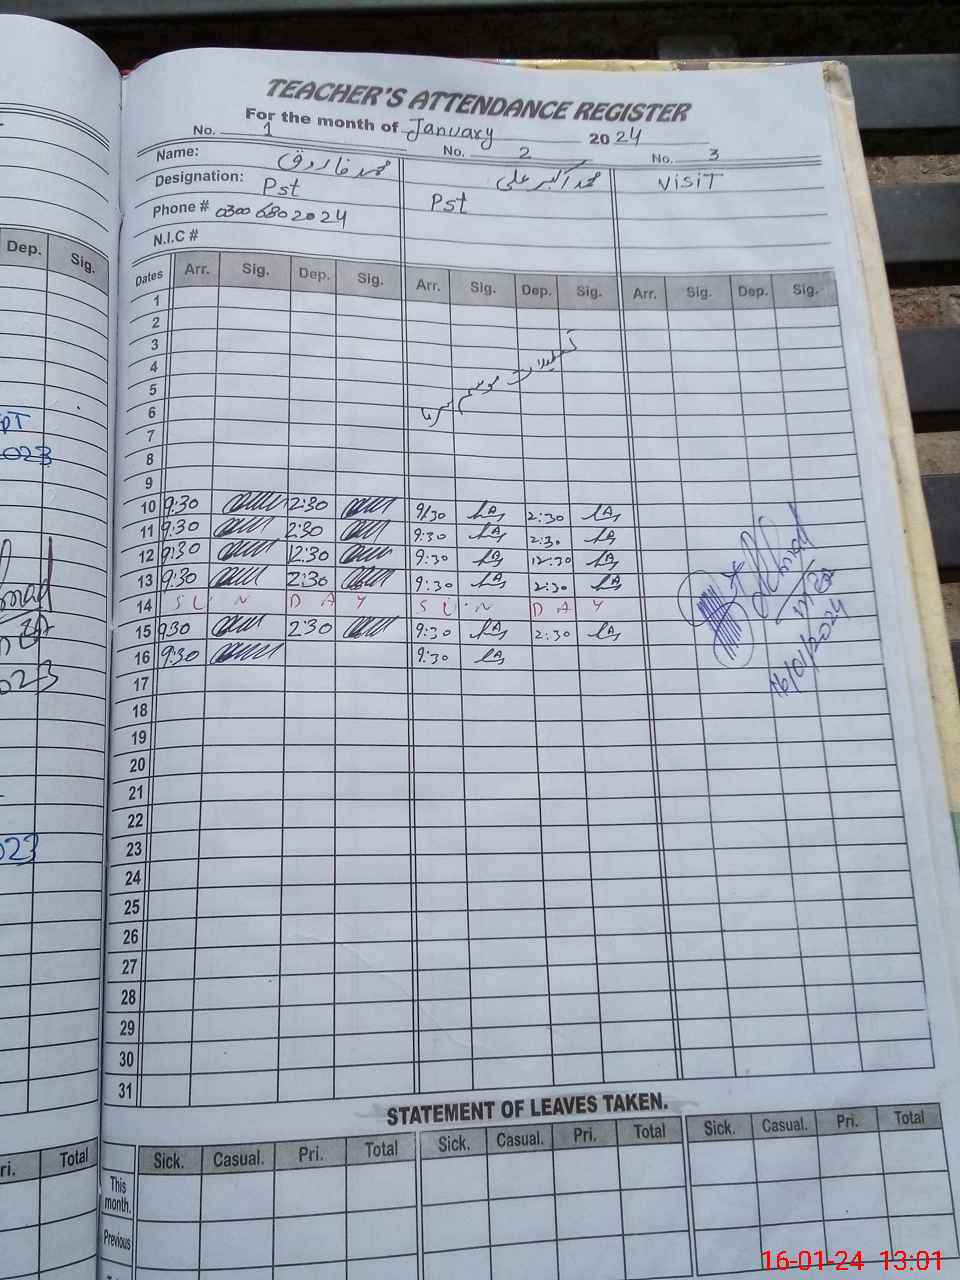 TEACHER'S ATTENDANCE REGISTER
For the month of January 2024
No. 1 No. 2 No. 3
Name: محمد فاروق محمد اکبر علی VISIT
Designation: Pst Pst
Phone # 0300 6802024
N.I.C #
Dates Arr. Sig. Dep. Sig. Arr. Sig. Dep. Sig. Arr. Sig. Dep. Sig.
1
2
3
4
5
6
تعطیلات موسم سرما
7
8
9
10 9:30 2:30 9:30 2:30
11 9:30 2:30 9:30 2:30
12 9:30 12:30 9:30 12:30
13 9:30 2:30 9:30 2:30
14 SUN DAY SUN DAY
15 930 2:30 9:30 2:30
16 9:30 9:30
16/01/2024
17
18
19
20
21
22
23
24
25
26
27
28
29
30
31
STATEMENT OF LEAVES TAKEN.
Sick. Casual. Pri. Total Sick. Casual. Pri. Total Sick. Casual. Pri. Total
This month.
Previous
Dep. Sig.
023
023
023
ri. Total
16-01-24 13:01